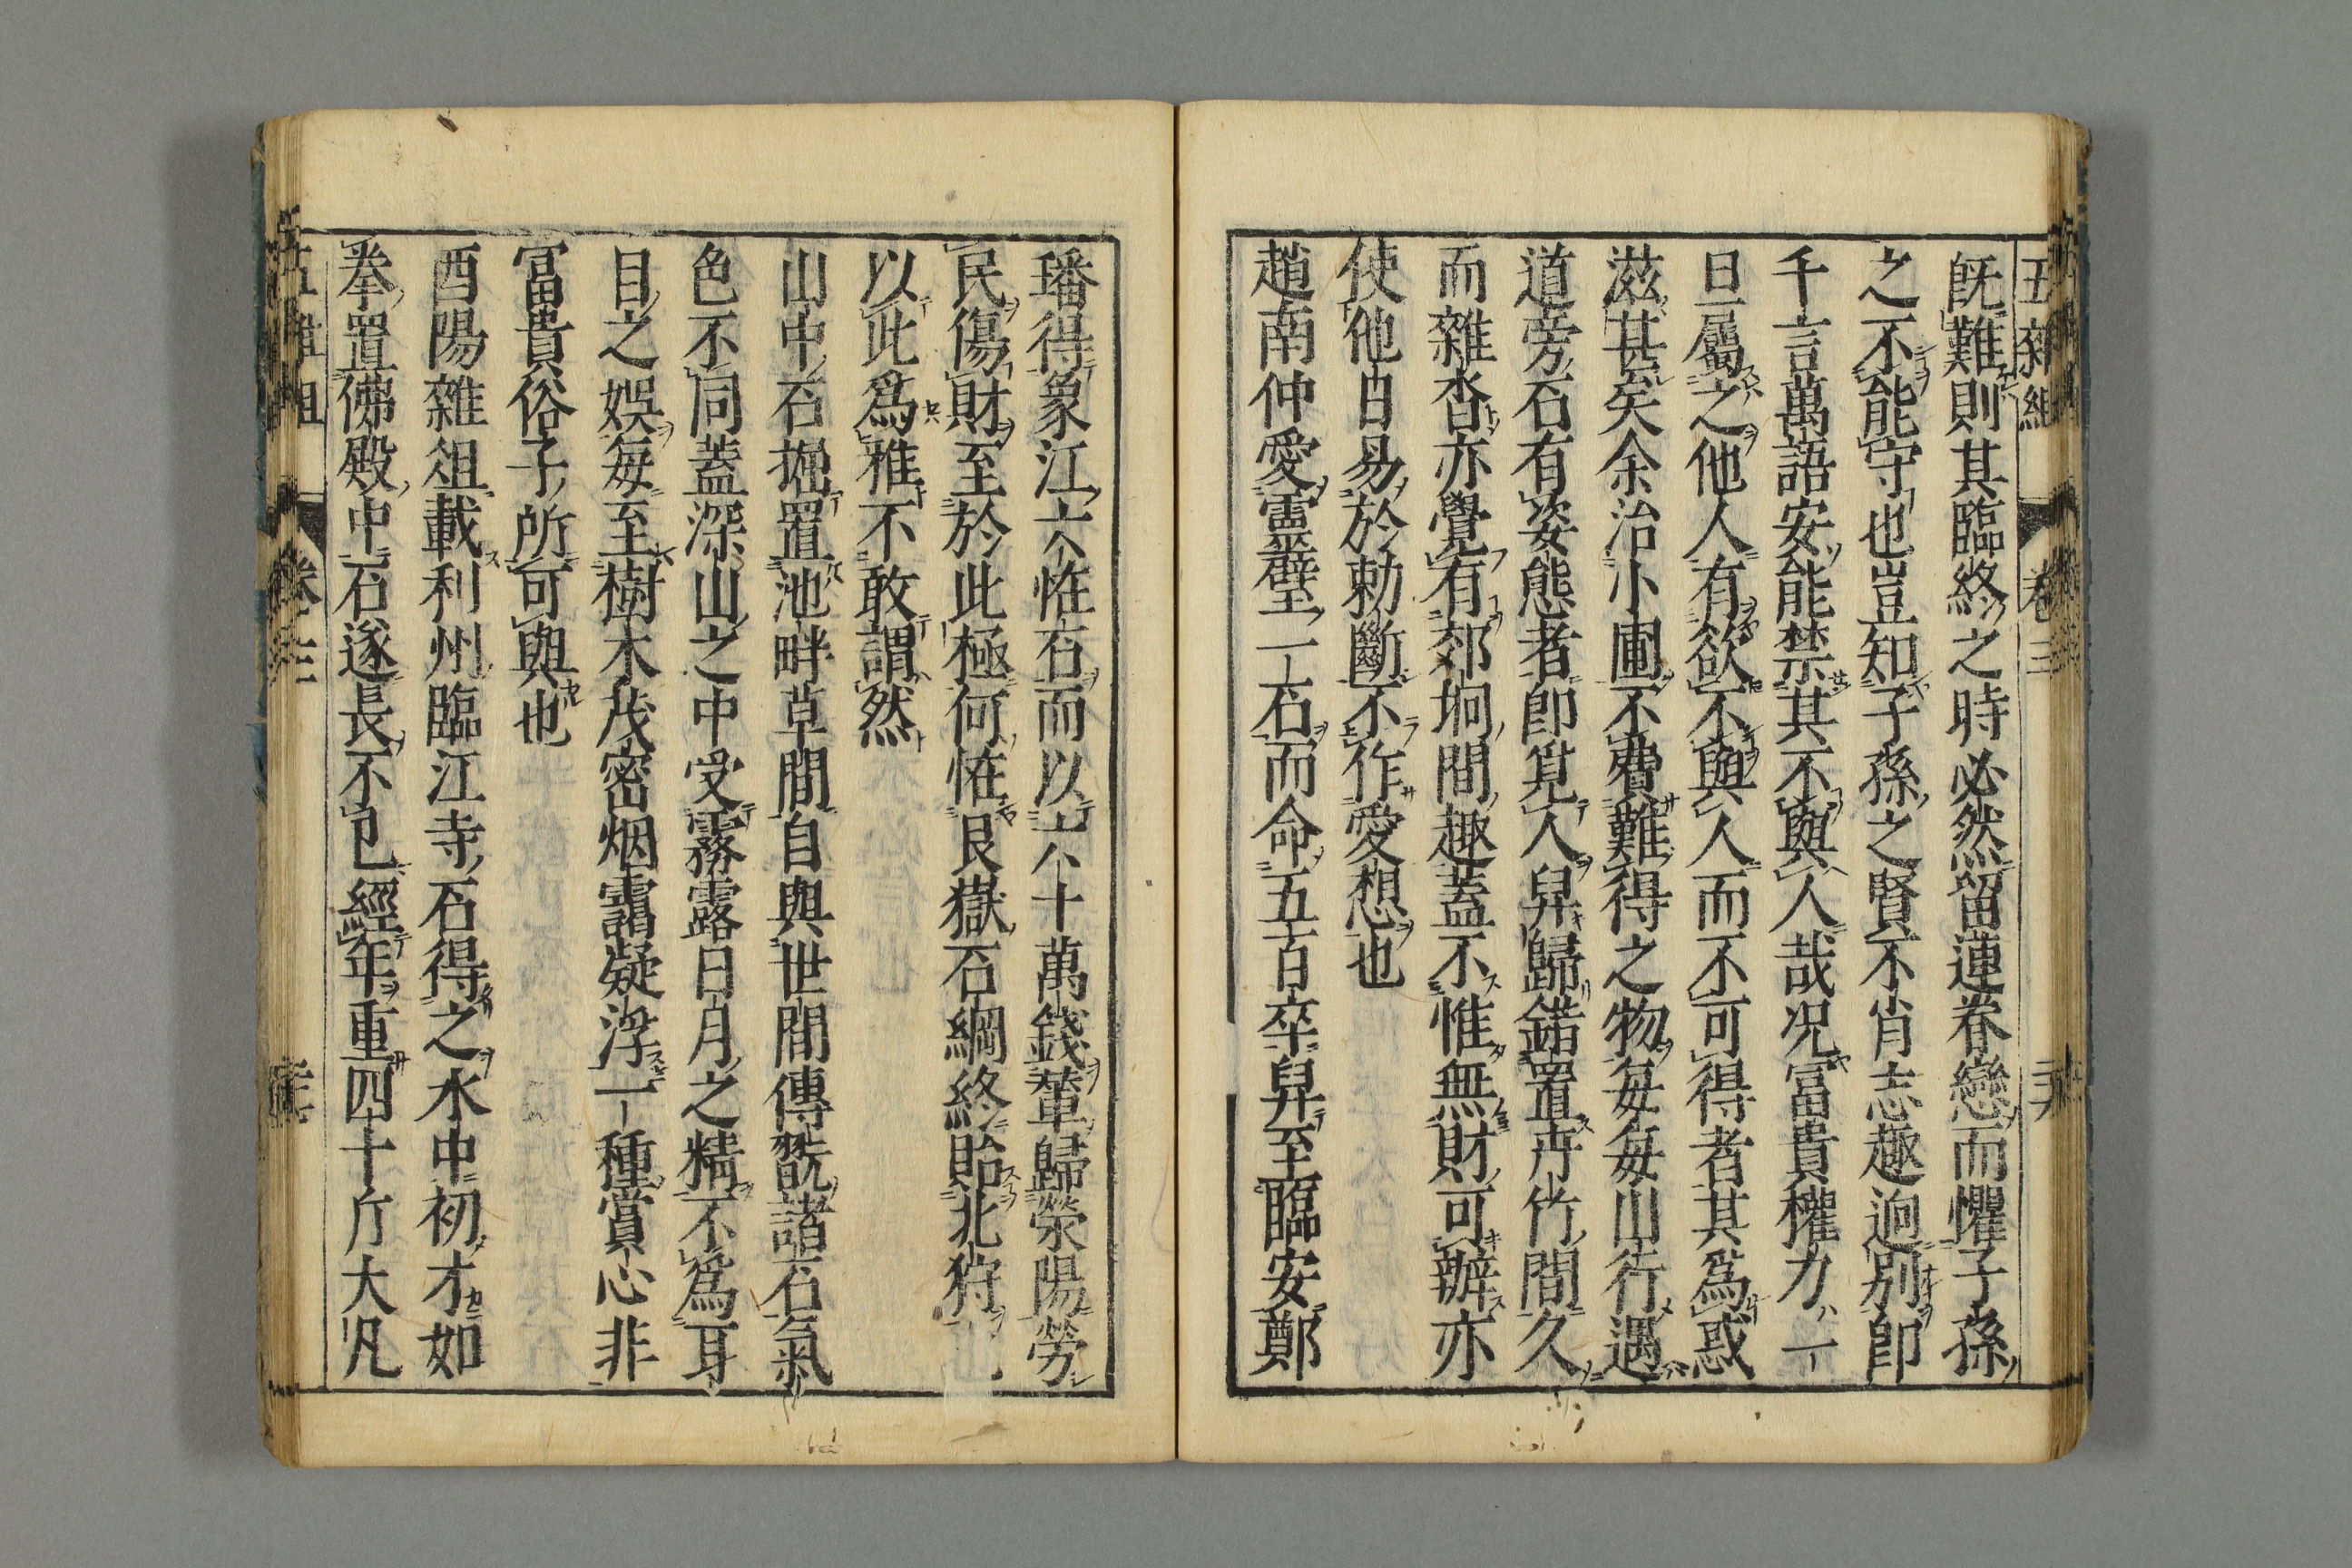 五雜組 卷三
旣難則其臨終之時必然留連眷戀而懼子孫
之不能守也豈知子孫之賢不肖志趣逈別卽
千言萬語安能禁其不與人哉况冨貴權力一
旦屬之他人有欲不與人而不可得者其爲惑
滋甚矣余治小圃不費難得之物每每山行遇
道旁石有姿態者卽覓人舁歸錯置卉竹間久
而雜沓亦覺有郊坰間趣蓋不惟無財可辦亦
使他日易於勅斷不作愛想也
趙南仲愛靈璧一石而命五百卒舁至臨安鄭
璠得象江六恠石而以六十萬錢輦歸滎陽勞
民傷財至於此極何恠艮嶽石綱終貽北狩
以此爲雅不敢謂然
山中石掘置池畔草間自與世間傳翫諸石氣
色不同蓋深山之中受霧露日月之精不爲耳
目之娛每至樹木茂密烟靄凝浮一種賞心非
冨貴俗子所可與也
酉陽雜俎載利州臨江寺石得之水中初才如
拳置佛殿中石遂長不已經年重四十斤大凡
五雜組 卷三